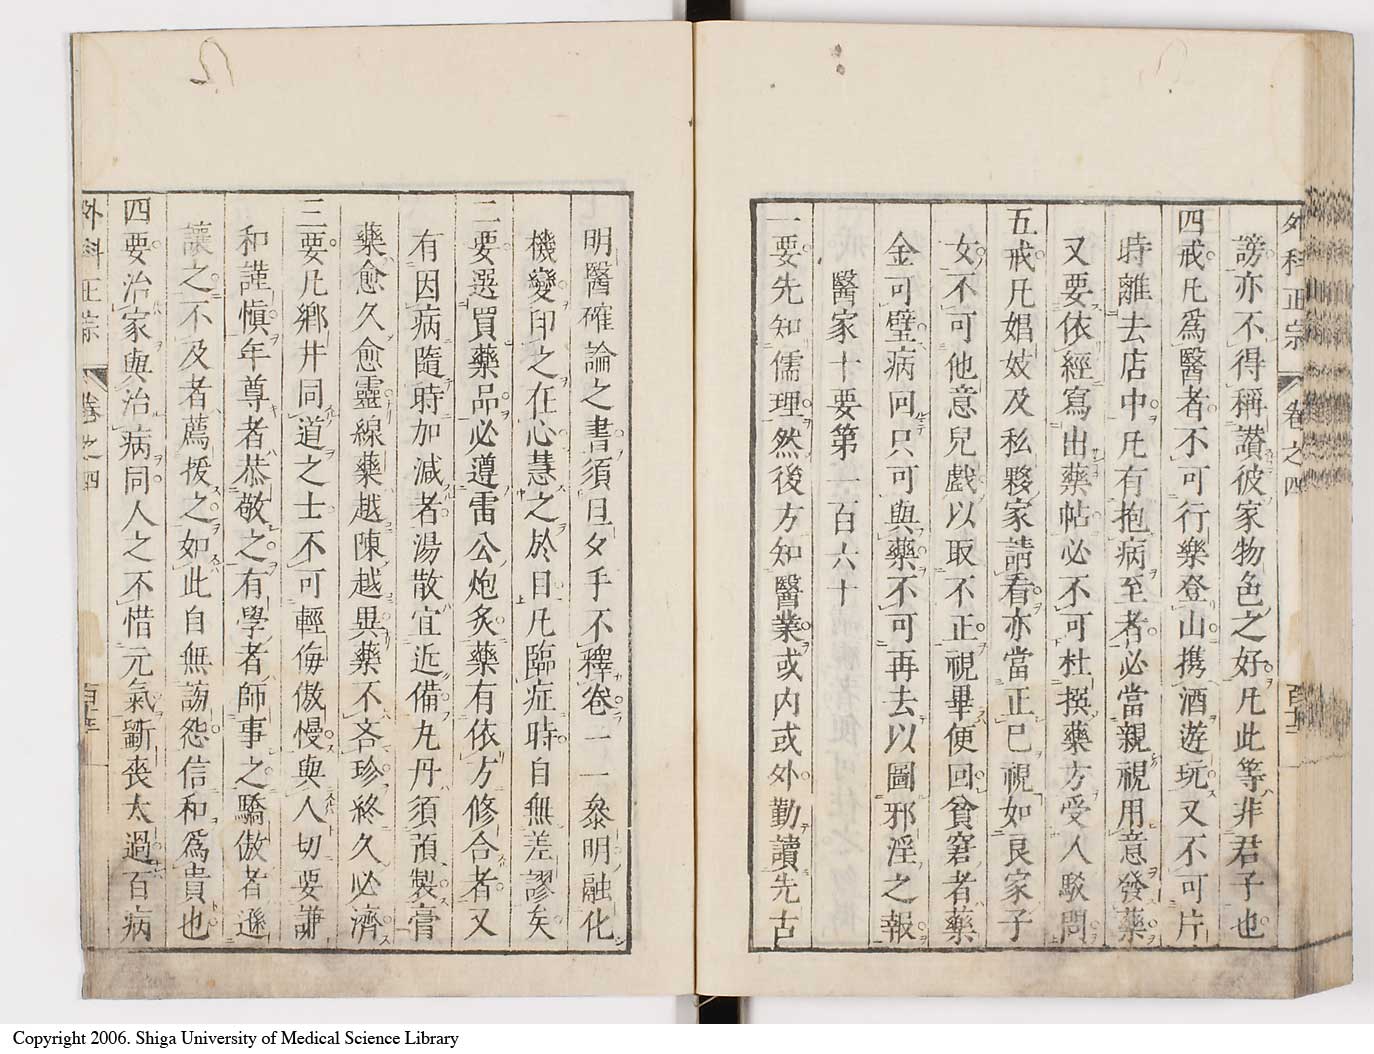 外科正宗 卷之四
謗亦不得稱讚彼家物色之好凡此等非君子也
四戒凡爲醫者不可行樂登山携酒遊玩又不可片
時離去店中凡有抱病至者必當親視用意發藥
又要依經寫出藥帖必不可杜撰藥方受人駁問
五戒凡娼妓及私夥家請看亦當正己視如良家子
女不可他意兒戲以取不正視畢便回貧窘者藥
金可璧病回只可與藥不可再去以圖邪淫之報
醫家十要第一百六十
一要先知儒理然後方知醫業或內或外勤讀先古
明醫確論之書須旦夕手不釋卷一一參明融化
機變印之在心慧之於目凡臨症時自無差謬矣
二要選買藥品必遵雷公炮炙藥有依方修合者又
有因病隨時加減者湯散宜近備丸丹須預製膏
藥愈久愈靈線藥越陳越異藥不吝珍終久必濟
三要凡鄉井同道之士不可輕侮傲慢與人切要謙
和謹愼年尊者恭敬之有學者師事之驕傲者遜
讓之不及者薦拔之如此自無謗怨信和爲貴也
四要治家與治病同人之不惜元氣斷喪太過百病
外科正宗 卷之四
Copyright 2006. Shiga University of Medical Science Library